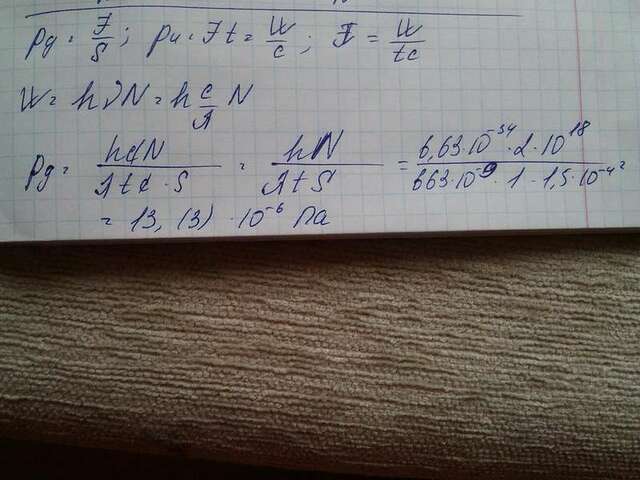 Pg = F/S ; pu = Ft = W/c ; F = W/tc
W = hνN = h c/λ N
Pg = hcN/λtc·S = hN/λtS = 6,63·10⁻³⁴·2·10¹⁸/663·10⁻⁹·1·1,5·10⁻⁴
= 13,(3)·10⁻⁶ Па